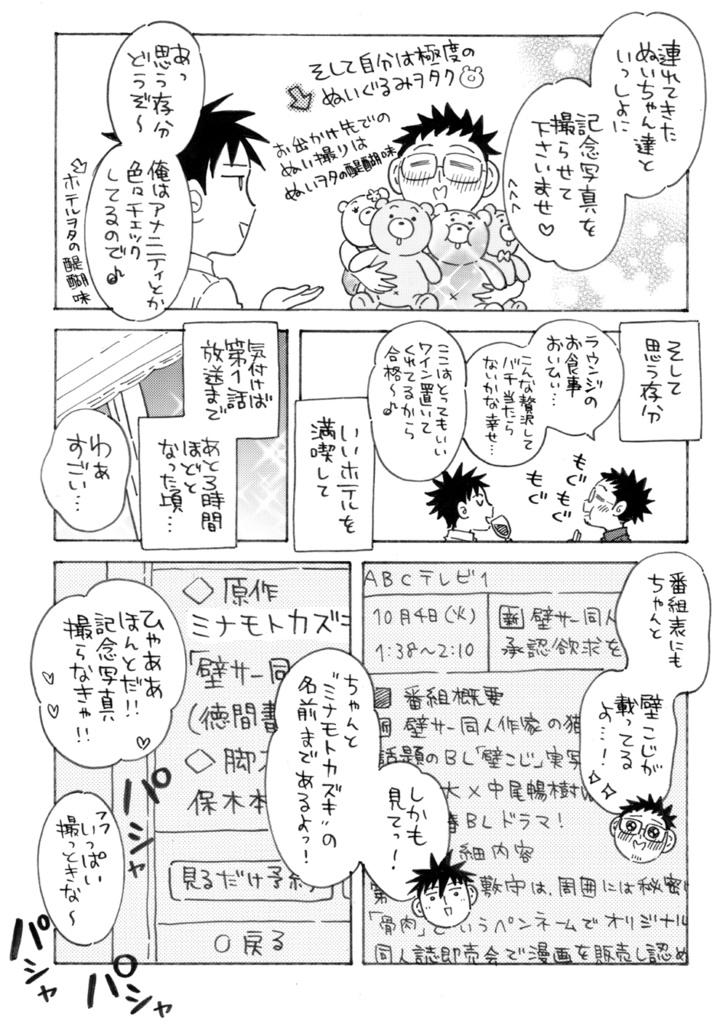 連れてきた
ぬいちゃん達と
いっしょに
記念写真を
撮らせて
下さいませ♡
そして自分は極度の
ぬいぐるみヲタク
お出かけ先での
ぬい撮りは
ぬいヲタの醍醐味
あっ
思う存分
どうぞ〜
俺はアメニティとか
色々チェック
してるので♪
ホテルヲタの醍醐味
そして
思う存分
ラウンジの
お食事
おいひぃ…
こんな贅沢して
バチ当たら
ないかな幸せ…
ここはとってもいい
ワイン置いて
くれてるから
合格〜♪
もぐ
もぐ
もぐ
いいホテルを
満喫して
気付けば
第1話
放送まで
あと3時間
ほどと
なった頃…
わぁ
すごい…
番組表にも
ちゃんと
壁こじが
載ってる
よ…!
ABCテレビ1
10月4日(火)
1:38〜2:10
新 壁サー同人
承認欲求を
番組概要
壁サー同人作家の猫
話題のBL「壁こじ」実写
大×中尾暢樹W
BLドラマ!
細内容
敷守は、周囲には秘密
「骨肉」というペンネームでオリジナル
同人誌即売会で漫画を販売し認め
しかも
見てっ!
ちゃんと
"ミナモトカズキ"の
名前まであるよっ!
◇原作
ミナモトカズキ
「壁サー同
(徳間書
◇脚
保木本
見るだけ予約
○戻る
ひゃああ
ほんとだ!!
記念写真
撮らなきゃ!!
フフ
いっぱい
撮っときな〜
パシャ
パシャ
パシャ